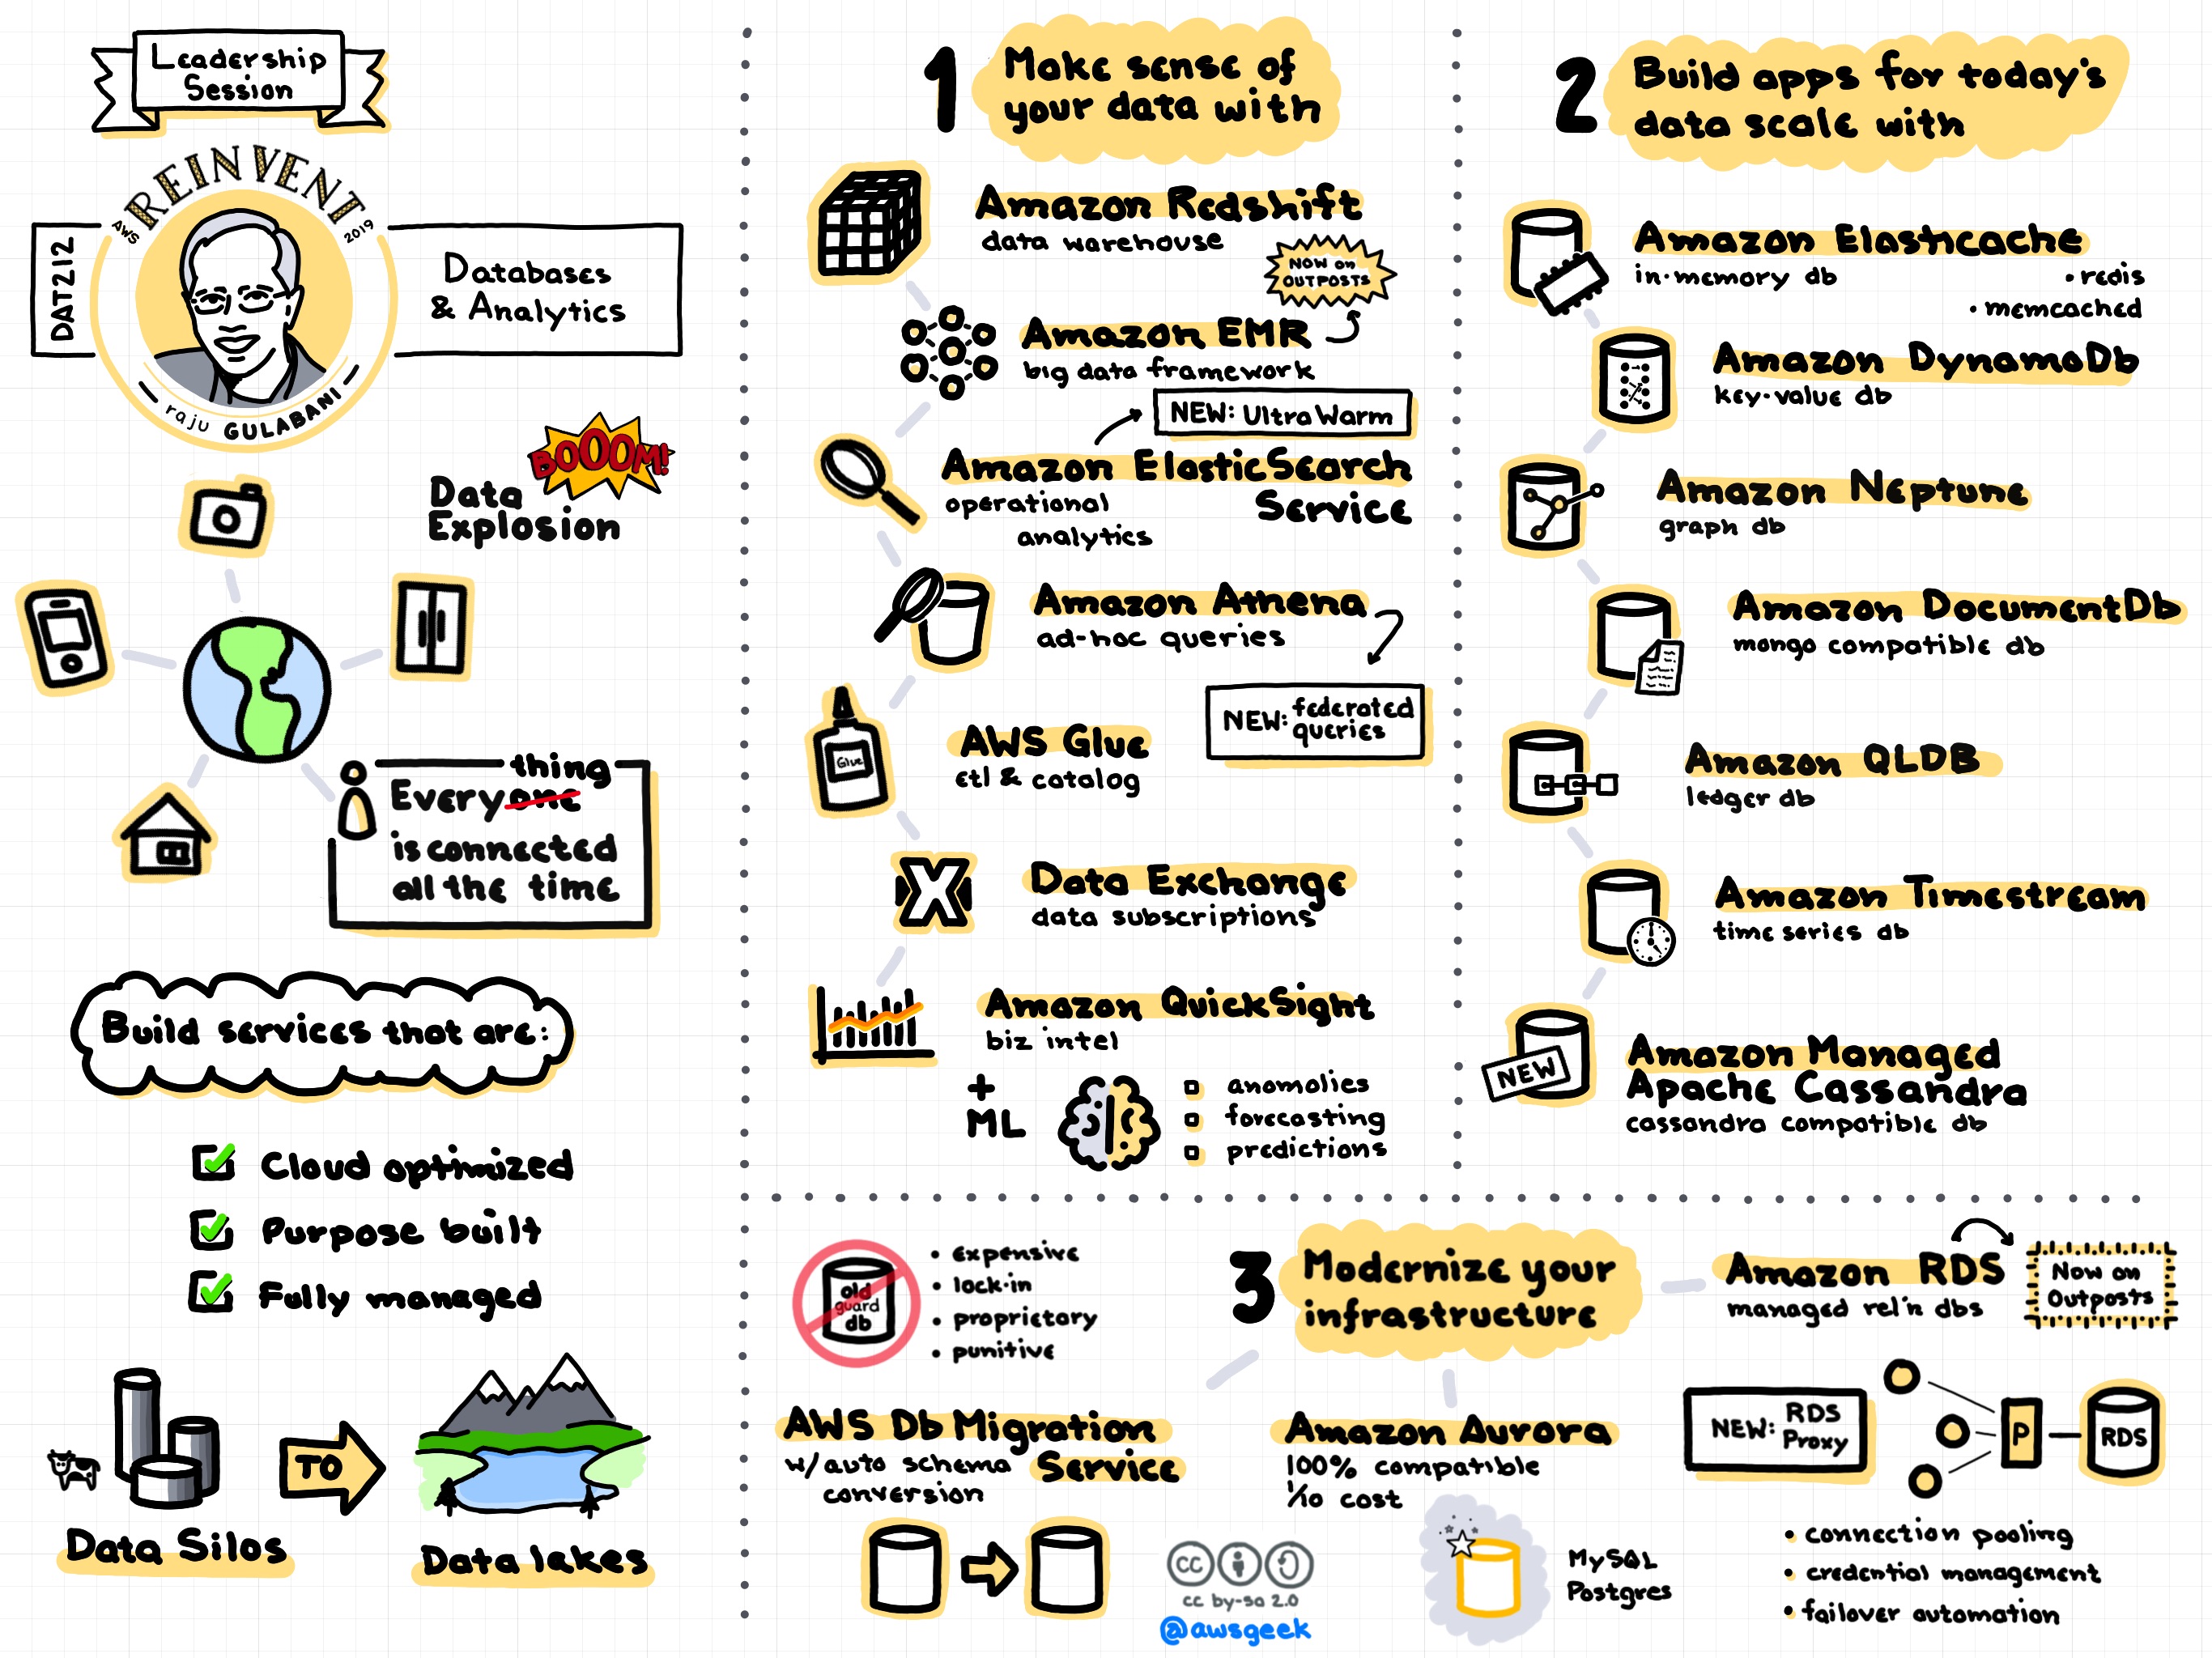 Leadership
Session
AWS REINVENT 2019
DAT212
Databases
& Analytics
raju GULABANI
BOOOM!
Data
Explosion
thing
Everyone
is connected
all the time
Build services that are:
Cloud optimized
Purpose built
Fully managed
TO
Data Silos
Data lakes
1
Make sense of
your data with
Amazon Redshift
data warehouse
NOW on
OUTPOSTS
Amazon EMR
big data framework
NEW: UltraWarm
Amazon ElasticSearch
Service
operational
analytics
Amazon Athena
ad-hoc queries
NEW: federated
queries
Glue
AWS Glue
etl & catalog
X
Data Exchange
data subscriptions
Amazon QuickSight
biz intel
+
ML
anomolies
forecasting
predictions
2
Build apps for today's
data scale with
Amazon Elasticache
in-memory db
• redis
• memcached
Amazon DynamoDb
key-value db
Amazon Neptune
graph db
Amazon DocumentDb
mongo compatible db
Amazon QLDB
ledger db
Amazon Timestream
time series db
NEW
Amazon Managed
Apache Cassandra
cassandra compatible db
old
guard
db
• expensive
• lock-in
• proprietary
• punitive
3
Modernize your
infrastructure
AWS Db Migration
Service
w/auto schema
conversion
Amazon Aurora
100% compatible
1/10 cost
MySQL
Postgres
Amazon RDS
managed rel'n dbs
Now on
Outposts
NEW: RDS
Proxy
P
RDS
• connection pooling
• credential management
• failover automation
cc
cc by-sa 2.0
@awsgeek